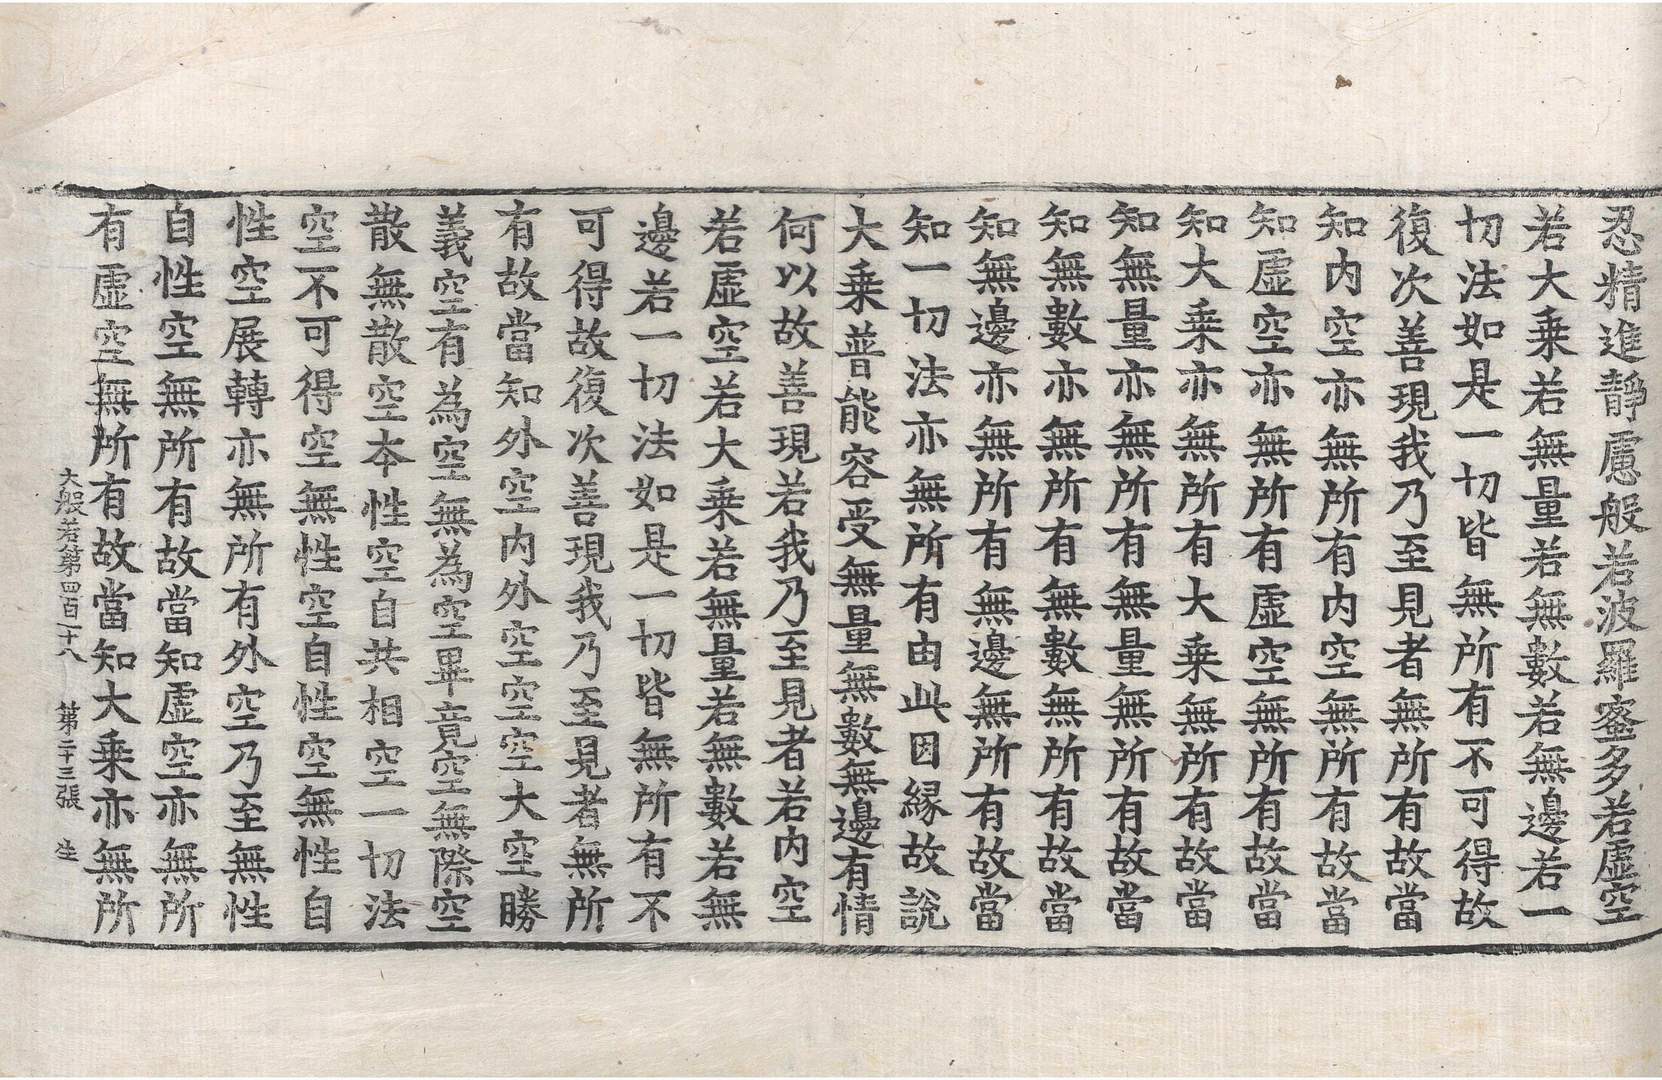 忍精進靜慮般若波羅蜜多若虛空
若大乘若無量若無數若無邊若一
切法如是一切皆無所有不可得故
復次善現我乃至見者無所有故當
知內空亦無所有內空無所有故當
知虛空亦無所有虛空無所有故當
知大乘亦無所有大乘無所有故當
知無量亦無所有無量無所有故當
知無數亦無所有無數無所有故當
知無邊亦無所有無邊無所有故當
知一切法亦無所有由此因緣故說
大乘普能容受無量無數無邊有情
何以故善現若我乃至見者若內空
若虛空若大乘若無量若無數若無
邊若一切法如是一切皆無所有不
可得故復次善現我乃至見者無所
有故當知外空內外空空空大空勝
義空有為空無為空畢竟空無際空
散無散空本性空自共相空一切法
空不可得空無性空自性空無性自
性空展轉亦無所有外空乃至無性
自性空無所有故當知虛空亦無所
有虛空無所有故當知大乘亦無所
大般若第四百一十八 第二十三張 生